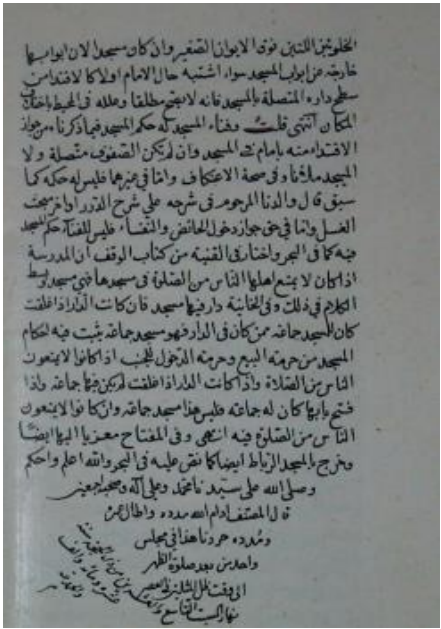 الخلوتين اللتين فوق الايوان الصغير وان كان مسجدا لان ابوابها
خارجة عن ابواب المسجد سواء اشتبه حال الامام اولا كالاقتداء من
سطح داره المتصلة بالمسجد فانه لا يصح مطلقا وعلله فى المحيط باختلاف
المكان انتهى قلت وفناء المسجد له حكم المسجد فيما ذكرنا من جواز
الاقتداء منه بامام فى المسجد وان لم يكن الصفوف متصلة ولا
المسجد ملانا وفى صحة الاعتكاف واما فى غيرهما فليس له حكمه كما
سبق قال والدنا المرحوم فى شرحه على شرح الدرر اواخر مبحث
الغسل واما فى حق جواز دخول الحائض والنفساء فليس للفناء حكم المسجد
فيه كما فى البحر واختار فى القنية من كتاب الوقف ان المدرسة
اذا كان لا يمنع اهلها الناس من الصلاة فى مسجدها فهي مسجد وبسط
الكلام فى ذلك وفى الخانية دار فيها مسجد فان كانت الدار اذا غلقت
كان للمسجد جماعة ممن كان فى الدار فهو مسجد جماعة يثبت فيه احكام
المسجد من حرمة البيع وحرمة الدخول للجنب اذا كانوا لا يمنعون
الناس من الصلاة واذا كانت الدار اذا غلقت لم يكن فيها جماعة واذا
فتح بابها كان له جماعة فليس هذا مسجد جماعة وان كانوا لا يمنعون
الناس من الصلوة فيه انتهى وفى المفتاح معزيا اليها ايضا
وخرج بالمسجد الرباط ايضا كما نص عليه فى البحر والله اعلم واحكم
وصلى الله على سيدنا محمد وعلى آله وصحبه اجمعين
قال المصنف ادام الله مدده واطال عمره
ومدده حررنا هذا فى مجلس
واحد من بعد صلوة الظهر
الى وقت
نهار السبت التاسع